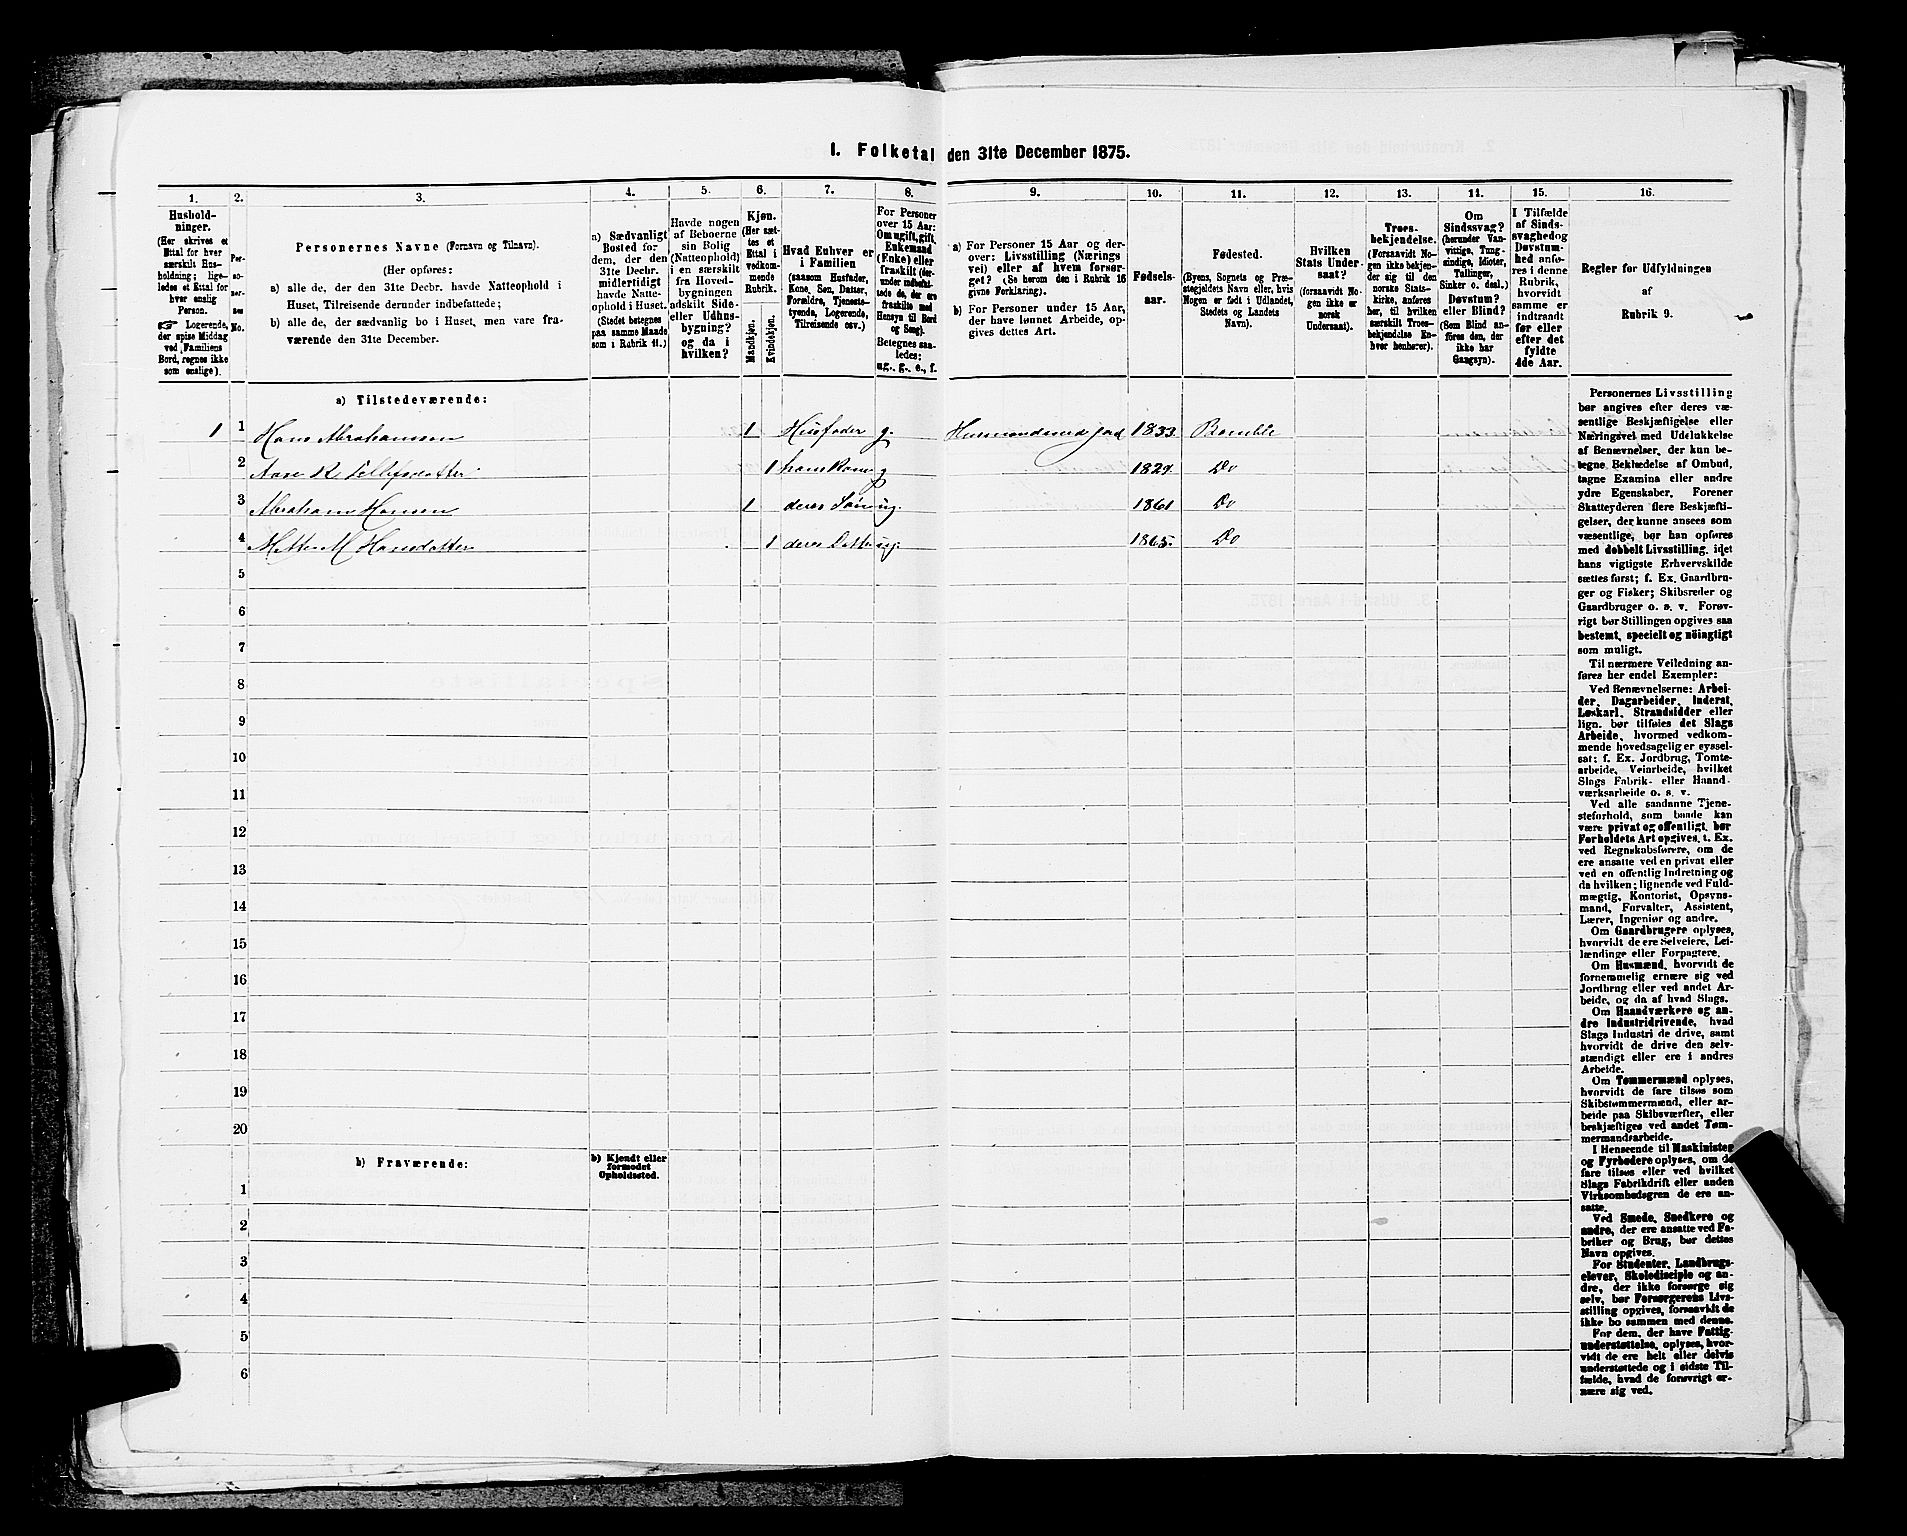 I. Folketal den 31te December 1875.
1.
2.
3.
4.
5.
6.
7.
8.
9.
10.
11.
12.
13.
14.
15.
16.
Hushold-
ninger.
(Her skrives et
Ettal for hver
særskilt Hus-
holdning; lige-
ledes et Ettal for
hver enslig
Person.
☞ Logerende,
der spise Middag
ved Familiens
Bord, regnes ikke
som enslige).
Per-
so-
ner-
nes
No.
Personernes Navne (Fornavn og Tilnavn).
(Her opføres:
a) alle de, der den 31te Decbr. havde Natteophold i
Huset, Tilreisende derunder indbefattede;
b) alle de, der sædvanlig bo i Huset, men vare fra-
værende den 31te December.
a) Sædvanligt
Bosted for
dem, der den
31te Decbr.
midlertidigt
havde Natte-
ophold i Huset.
(Stedet betegnes
paa samme Maade
som i Rubrik 11.)
Havde nogen
af Beboerne
sin Bolig
(Natteophold)
i en særskilt
fra Hoved-
bygningen
adskilt Side-
eller Udhus-
bygning?
og da i
hvilken?
Kjøn.
(Her sæt-
tes et
Ettal i
vedkom-
mende
Rubrik.
Mandkjøn.
Kvindekjøn.
Hvad Enhver er
i Familien
(saasom Husfader,
Kone, Søn, Datter,
Forældre, Tjeneste-
tyende, Logerende,
Tilreisende osv.)
For Personer
over 15 Aar:
Om ugift, gift,
Enkemand
(Enke) eller
fraskilt (der-
under indbefat-
tede de, der ere
fraskilte med
Hensyn til Bord
og Seng).
Betegnes saa-
ledes:
ug., g., e., f.
a) For Personer 15 Aar og der-
over: Livsstilling (Nærings
vei) eller af hvem forsør-
get? (Se herom den i Rubrik 16
givne Forklaring).
b) For Personer under 15 Aar,
der have lønnet Arbeide, op-
gives dettes Art.
Fødsels-
aar.
Fødested.
(Byens, Sognets og Præ-
stegjeldets Navn eller, hvis
Nogen er født i Udlandet,
Stedets og Landets
Navn).
Hvilken
Stats Under-
saat?
(forsaavidt No-
gen ikke er
norsk
Undersaat).
Troes-
bekjendelse.
(Forsaavidt No-
gen ikke bekjen-
der sig til den
norske Stats-
kirke, anføres
her, til hvilken
særskilt Troes-
bekjendelse En-
hver henhører).
Om
Sindssvag?
(herunder Van-
vittige, Tung-
sindige, Idioter,
Tullinger,
Sinker o. desl.)
Døvstum?
eller Blind?
(Som Blind an-
føres den, der
ikke har
Gangsyn).
I Tilfælde
af Sinds-
svaghed og
Døvstum-
hed anfø-
res i denne
Rubrik,
hvorvidt
samme er
indtraadt
før eller
efter det
fyldte
4de Aar.
Regler for Udfyldningen
af
Rubrik 9.
a) Tilstedeværende:
1 1 Hans Abrahamsen 1 Husfader g. 1833 Bamble
2 Aase K 1 hans Kone g 1829 Do
3 Abraham Hansen 1 deres Søn ug. 1861 Do
4 Mette M Hansdatter 1 deres Datter ug. 1865. Do
5
6
7
8
9
10
11
12
13
14
15
16
17
18
19
20
b) Fraværende:
b) Kjendt eller
formodet
Opholdssted.
1
2
3
4
5
6
Personernes Livsstilling
bør angives efter deres væ-
sentlige Beskjæftigelse eller
Næringsvei med Udelukkelse
af Benævnelser, der kun be-
tegne Beklædelse af Ombud,
tagne Examina eller andre
ydre Egenskaber. Forener
Skatteyderen flere Beskjæfti-
gelser, der kunne ansees som
væsentlige, bør han opføres
med dobbelt Livsstilling, idet
hans vigtigste Erhvervskilde
sættes først; f. Ex. Gaardbru-
ger og Fisker; Skibsreder og
Gaardbruger o. s. v. Forøv-
rigt bør Stillingen opgives saa
bestemt, specielt og nöiagtigt
som muligt.
Til nærmere Veiledning an-
føres her endel Exempler:
Ved Benævnelserne: Arbei-
der, Dagarbeider, Inderst,
Løskarl, Strandsidder eller
lign. bør tilføies det Slags
Arbeide, hvormed vedkom-
mende hovedsagelig er syssel-
sat; f. Ex. Jordbrug, Tomte-
arbeide, Veiarbeide, hvilket
Slags Fabrik- eller Haand-
værksarbeide o. s. v.
Ved alle saadanne Tjene-
steforhold, som baade kan
være privat og offentligt, bør
Forholdets Art opgives, t. Ex.
ved Regnskabsførere, om de
ere ansatte ved en privat eller
ved en offentlig Indretning og
da hvilken; lignende ved Fuld-
mægtig, Kontorist, Opsyns-
mand, Forvalter, Assistent,
Lærer, Ingeniør og andre.
Om Gaardbrugere oplyses,
hvorvidt de ere Selveiere, Lei-
lændinge eller Forpagtere.
Om Husmænd, hvorvidt de
fornemmelig ernære sig ved
Jordbrug eller ved andet Ar-
beide, og da af hvad Slags.
Om Haandværkere og an-
dre Industridrivende, hvad
Slags Industri de drive, samt
hvorvidt de drive den selv-
stændigt eller ere i andres
Arbeide.
Om Tømmermænd oplyses,
hvorvidt de fare tilsøs som
Skibstømmermænd, eller ar-
beide paa Skibsværfter, eller
beskjæftiges ved andet Tøm-
mermandsarbeide.
I Henseende til Maskinister
og Fyrbødere oplyses, om de
fare tilsøs eller ved hvilket
Slags Fabrikdrift eller anden
Virksomhedsgren de ere an-
satte.
Ved Smede, Snedkere og
andre, der ere ansatte ved Fa-
briker og Brug, bør dettes
Navn opgives.
For Studenter, Landbrugs-
elever, Skoledisciple og an-
dre, der ikke forsørge sig
selv, bør Forsørgerens Livs-
stilling opgives, forsaavidt de
ikke bo sammen med denne.
For dem, der have Fattig-
understøttelse, oplyses, hvor-
vidt de ere helt eller delvis
understøttede og i sidste Til-
fælde, hvad de forøvrigt er-
nære sig ved.